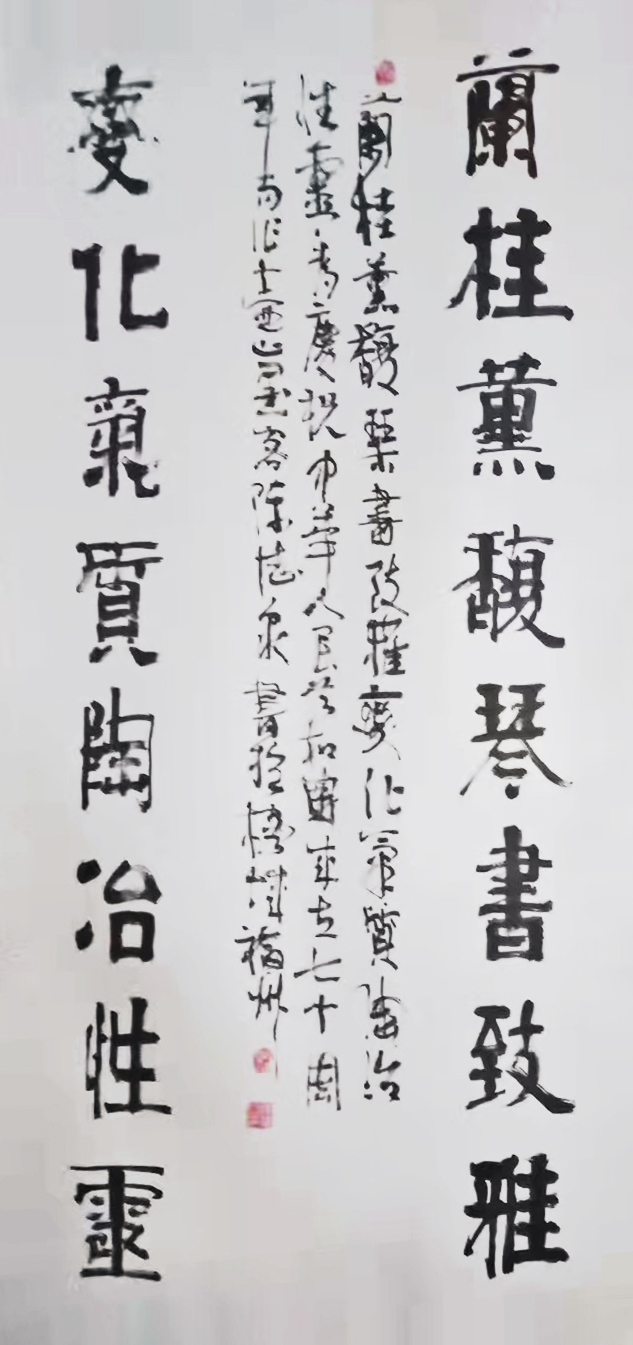 蘭桂薰馥琴書致雅
蘭桂薰馥琴書致雅變化氣質陶冶
性靈 為慶祝中華人民共和國成立七十周
年而作 陳 泉書於榕城福州
變化氣質陶冶性靈